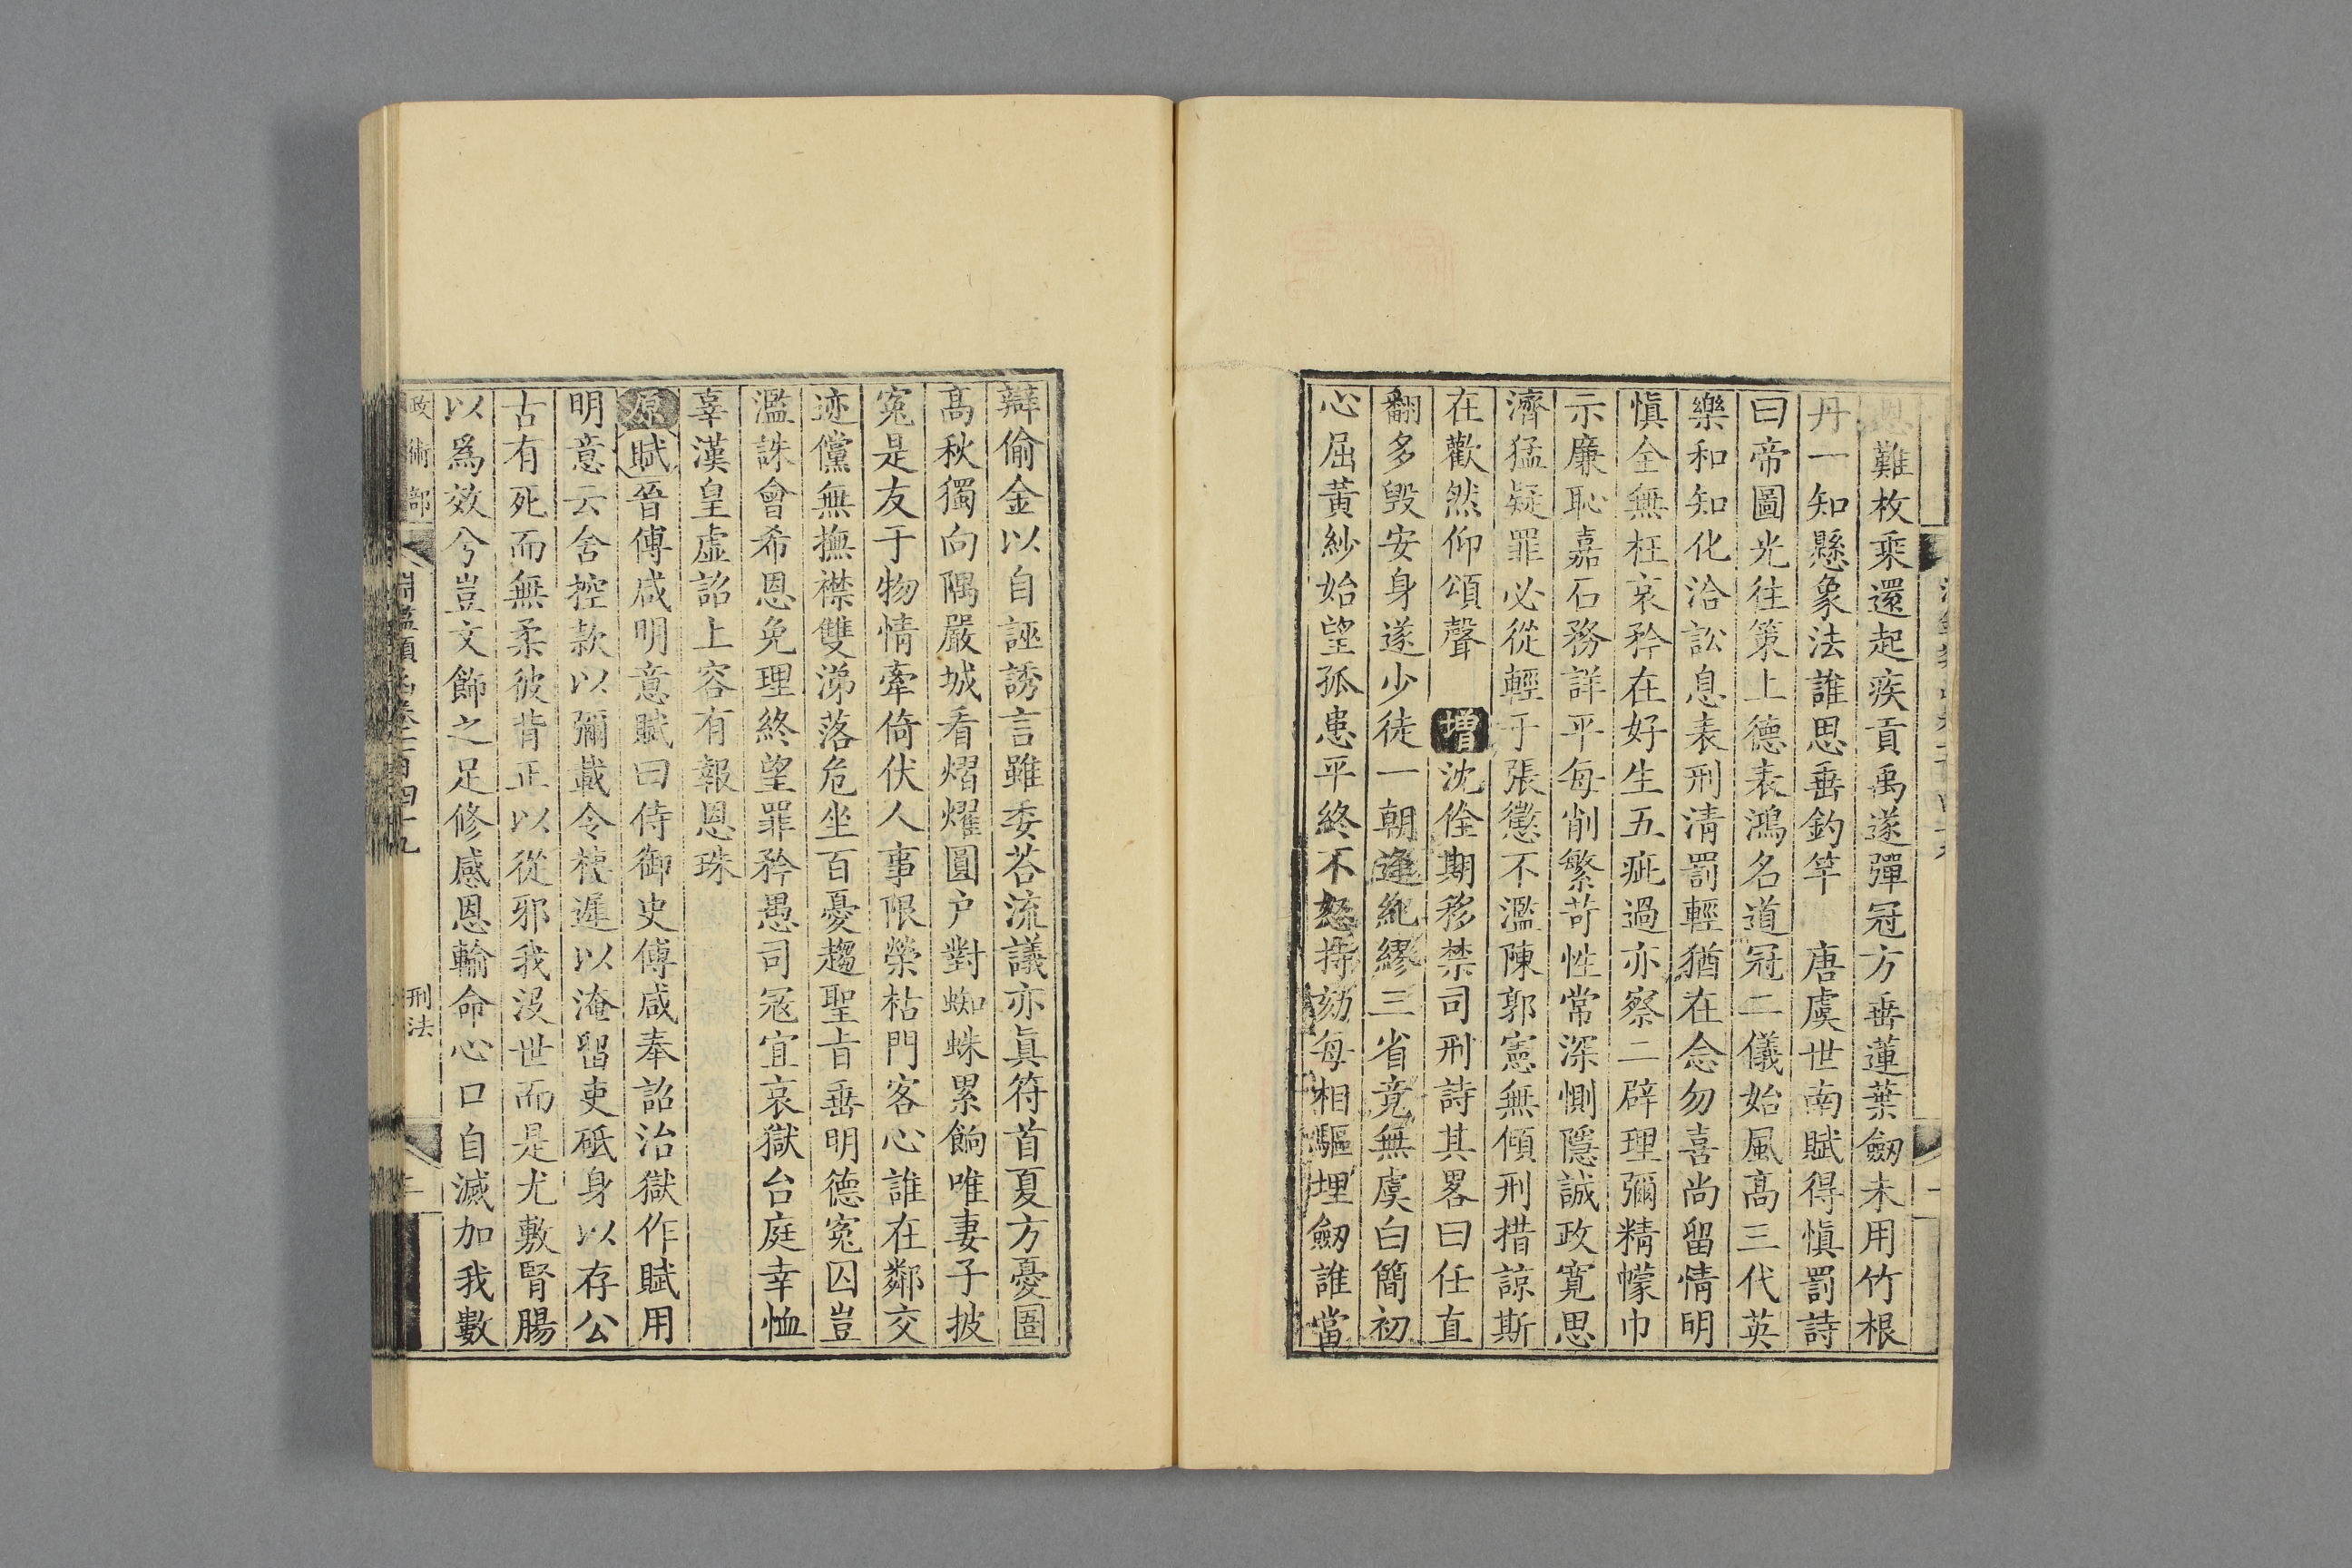 難枚乘還起疾貢禹遂彈冠方垂蓮葉劒未用竹根
丹一知懸象法誰思垂釣竿　唐虞世南賦得慎罰詩
曰帝圖光往策上德表鴻名道冠二儀始風高三代英
樂和知化洽訟息表刑清罰輕猶在念勿喜尚留情明
慎全無枉哀矜在好生五疵過亦察二辟理彌精幪巾
示廉恥嘉石務詳平每削繁苛性常深惻隱誠政寬思
濟猛疑罪必從輕于張懲不濫陳郭憲無傾刑措諒斯
在歡然仰頌聲　增沈佺期移禁司刑詩其畧曰任直
翻多毀安身遂少徒一朝逢糺繆三省竟無虞白簡初
心屈黃紗始望孤患平終不怒持劾每相驅埋劒誰當
辯偷金以自誣誘言雖委答流議亦真符首夏方憂圄
高秋獨向隅嚴城看熠燿圓户對蜘蛛累餉唯妻子披
冤是友于物情牽倚伏人事限榮枯門客心誰在鄰交
迹儻無撫襟雙涕落危坐百憂趨聖旨垂明德冤囚豈
濫誅會希恩免理終望罪矜愚司寇宜哀獄台庭幸恤
辜漢皇虛詔上容有報恩珠
原賦晉傅咸明意賦曰侍御史傅咸奉詔治獄作賦用
明意云舍控款以彌載令棲遲以淹留吏砥身以存公
古有死而無柔彼背正以從邪我沒世而是尤敷腎腸
以爲效兮豈文飾之足修感恩輸命心口自滅加我數
政術部　淵鑑類函卷二百四十九　刑法　二